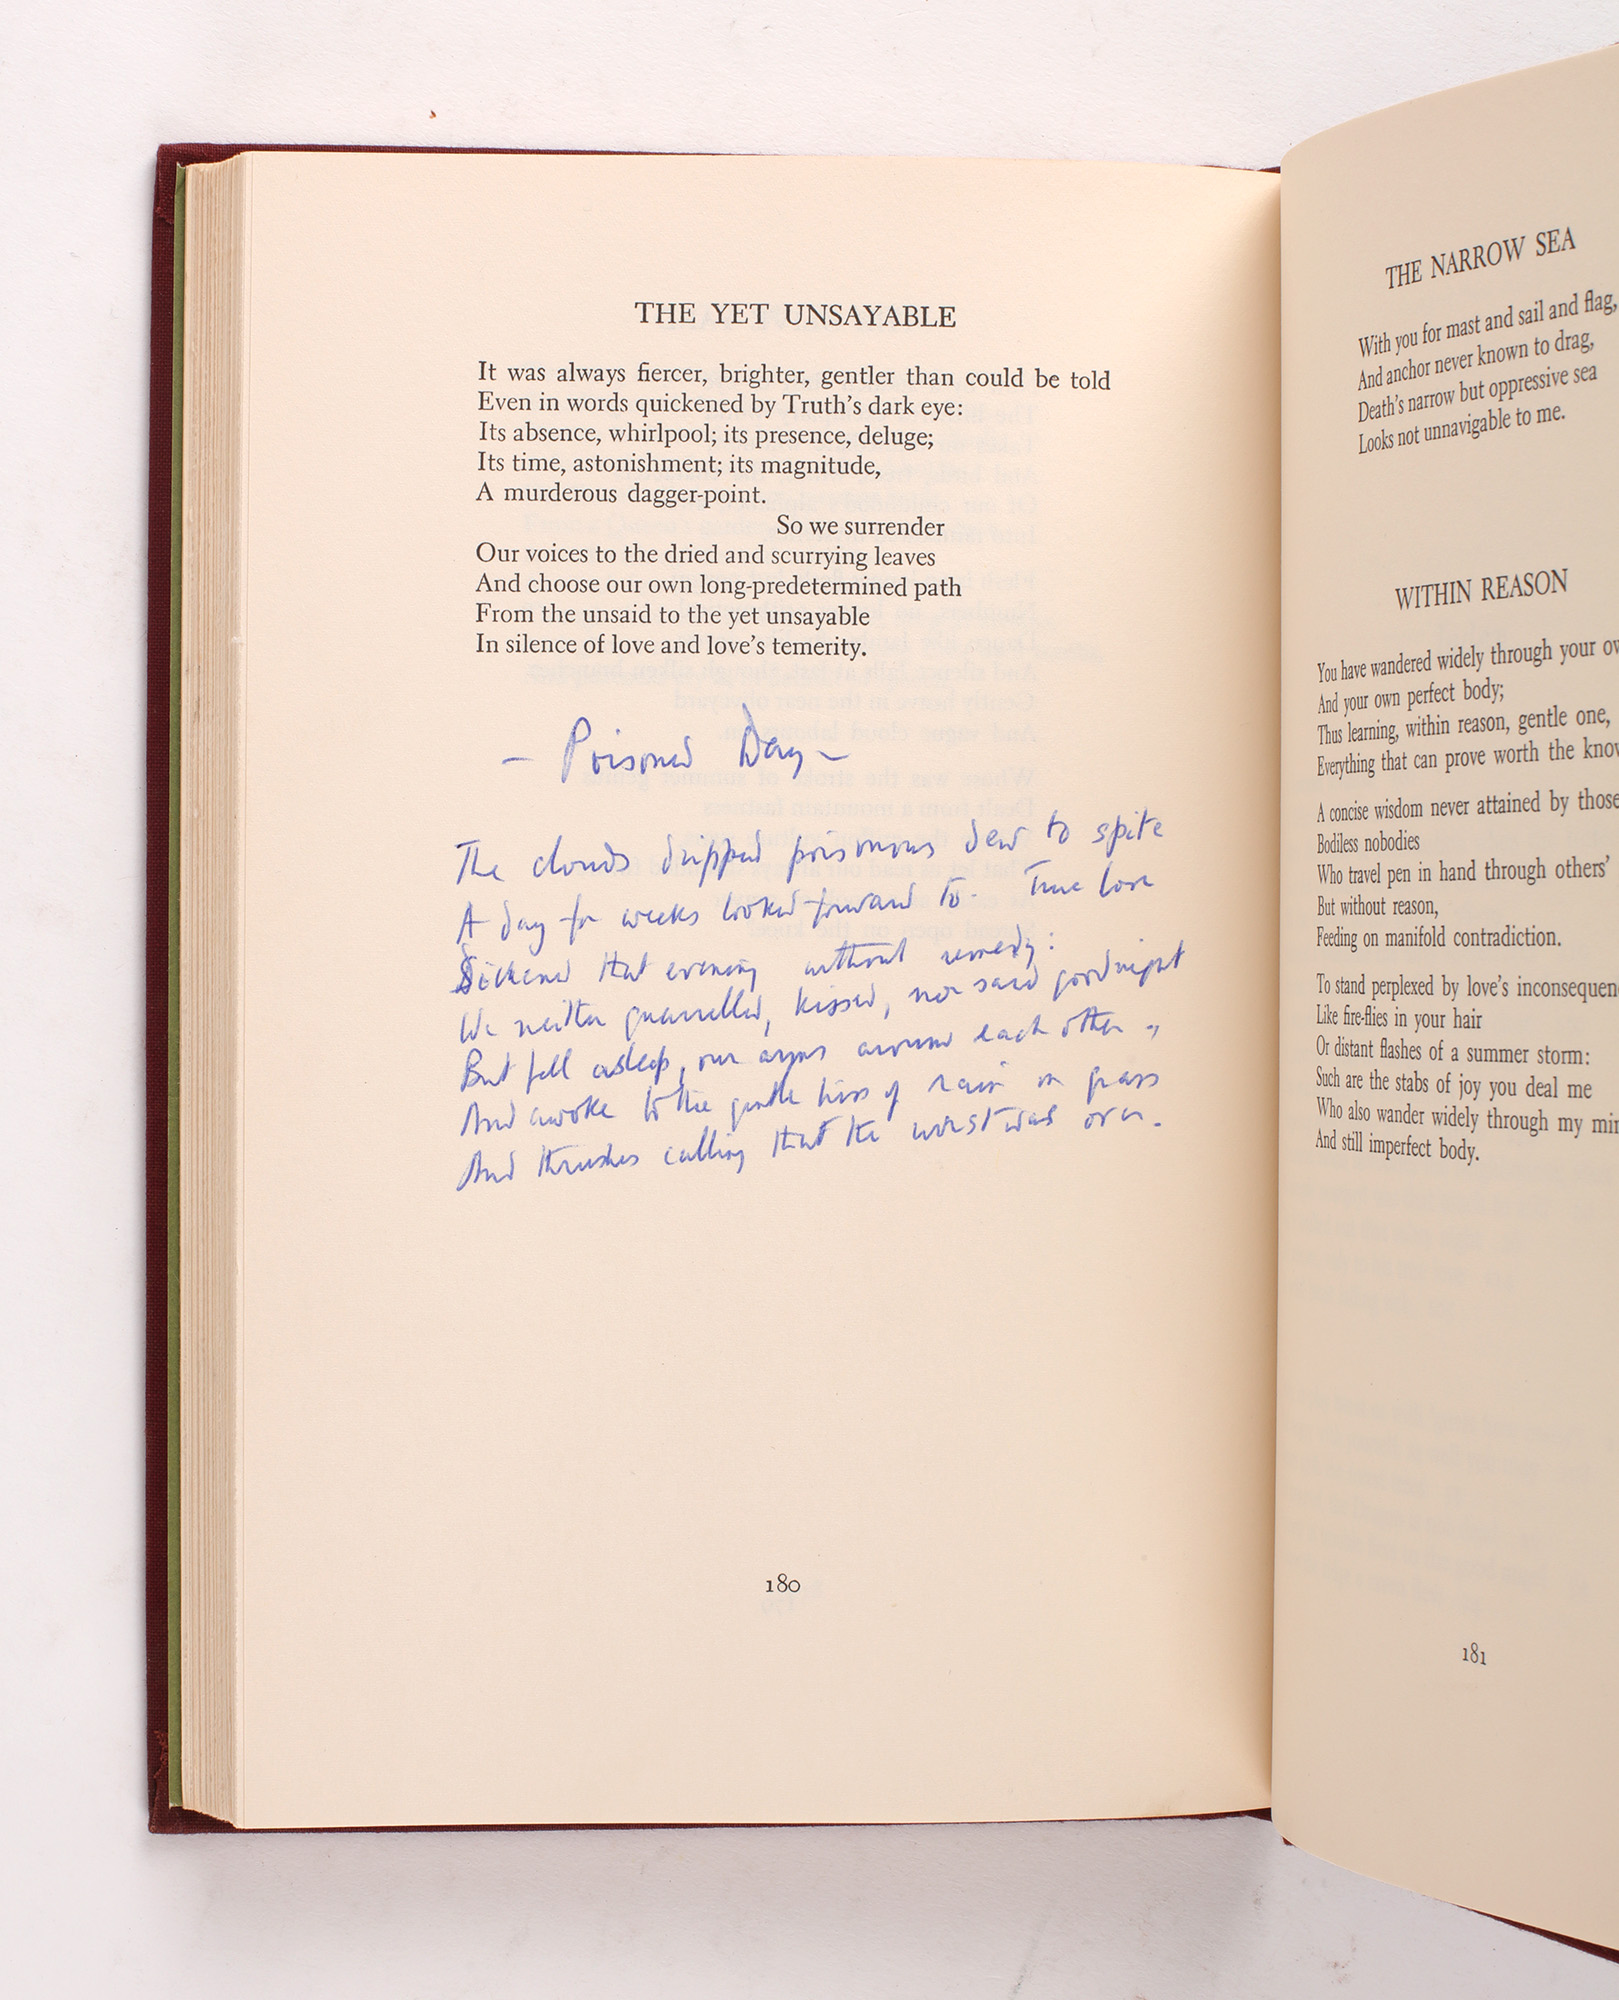 THE YET UNSAYABLE
It was always fiercer, brighter, gentler than could be told
Even in words quickened by Truth's dark eye:
Its absence, whirlpool; its presence, deluge;
Its time, astonishment; its magnitude,
A murderous dagger-point.
So we surrender
Our voices to the dried and scurrying leaves
And choose our own long-predetermined path
From the unsaid to the yet unsayable
In silence of love and love's temerity.
– Poisoned Day –
The clouds dripped poisonous dew to spite
A day for weeks looked forward to. True love
Sickened that evening without remedy:
We neither quarrelled, kissed, nor said goodnight
But fell asleep, our arms around each other,
And awoke to the gentle hiss of rain on grass
And thrushes calling that the worst was over.
180
THE NARROW SEA
With you for mast and sail and flag,
And anchor never known to drag,
Death's narrow but oppressive sea
Looks not unnavigable to me.
WITHIN REASON
You have wandered widely through your
And your own perfect body;
Thus learning, within reason, gentle one,
Everything that can prove worth the
A concise wisdom never attained by those
Bodiless nobodies
Who travel pen in hand through others'
But without reason,
Feeding on manifold contradiction.
To stand perplexed by love's
Like fire-flies in your hair
Or distant flashes of a summer storm:
Such are the stabs of joy you deal me
Who also wander widely through my
And still imperfect body.
181